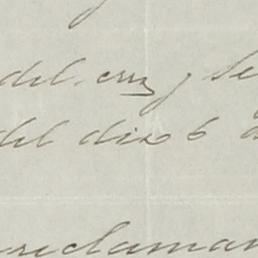 del cruz y
del dia 6
reclaman